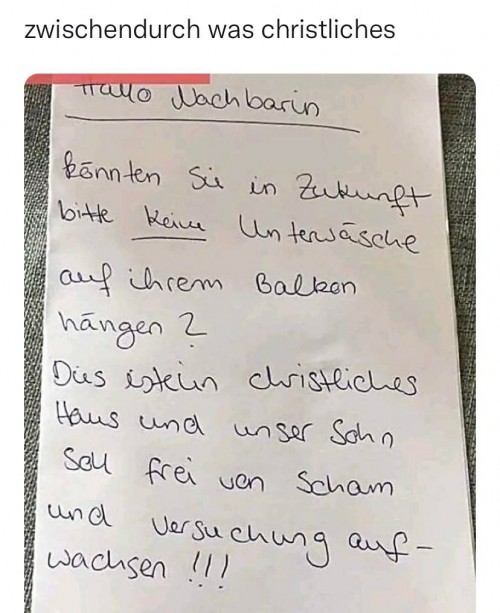 zwischendurch was christliches
Hallo Nachbarin
könnten Sie in Zukunft
bitte keine Unterwäsche
auf ihrem Balkon
hängen?
Dies ist ein christliches
Haus und unser Sohn
soll frei von Scham
und Versuchung auf-
wachsen !!!